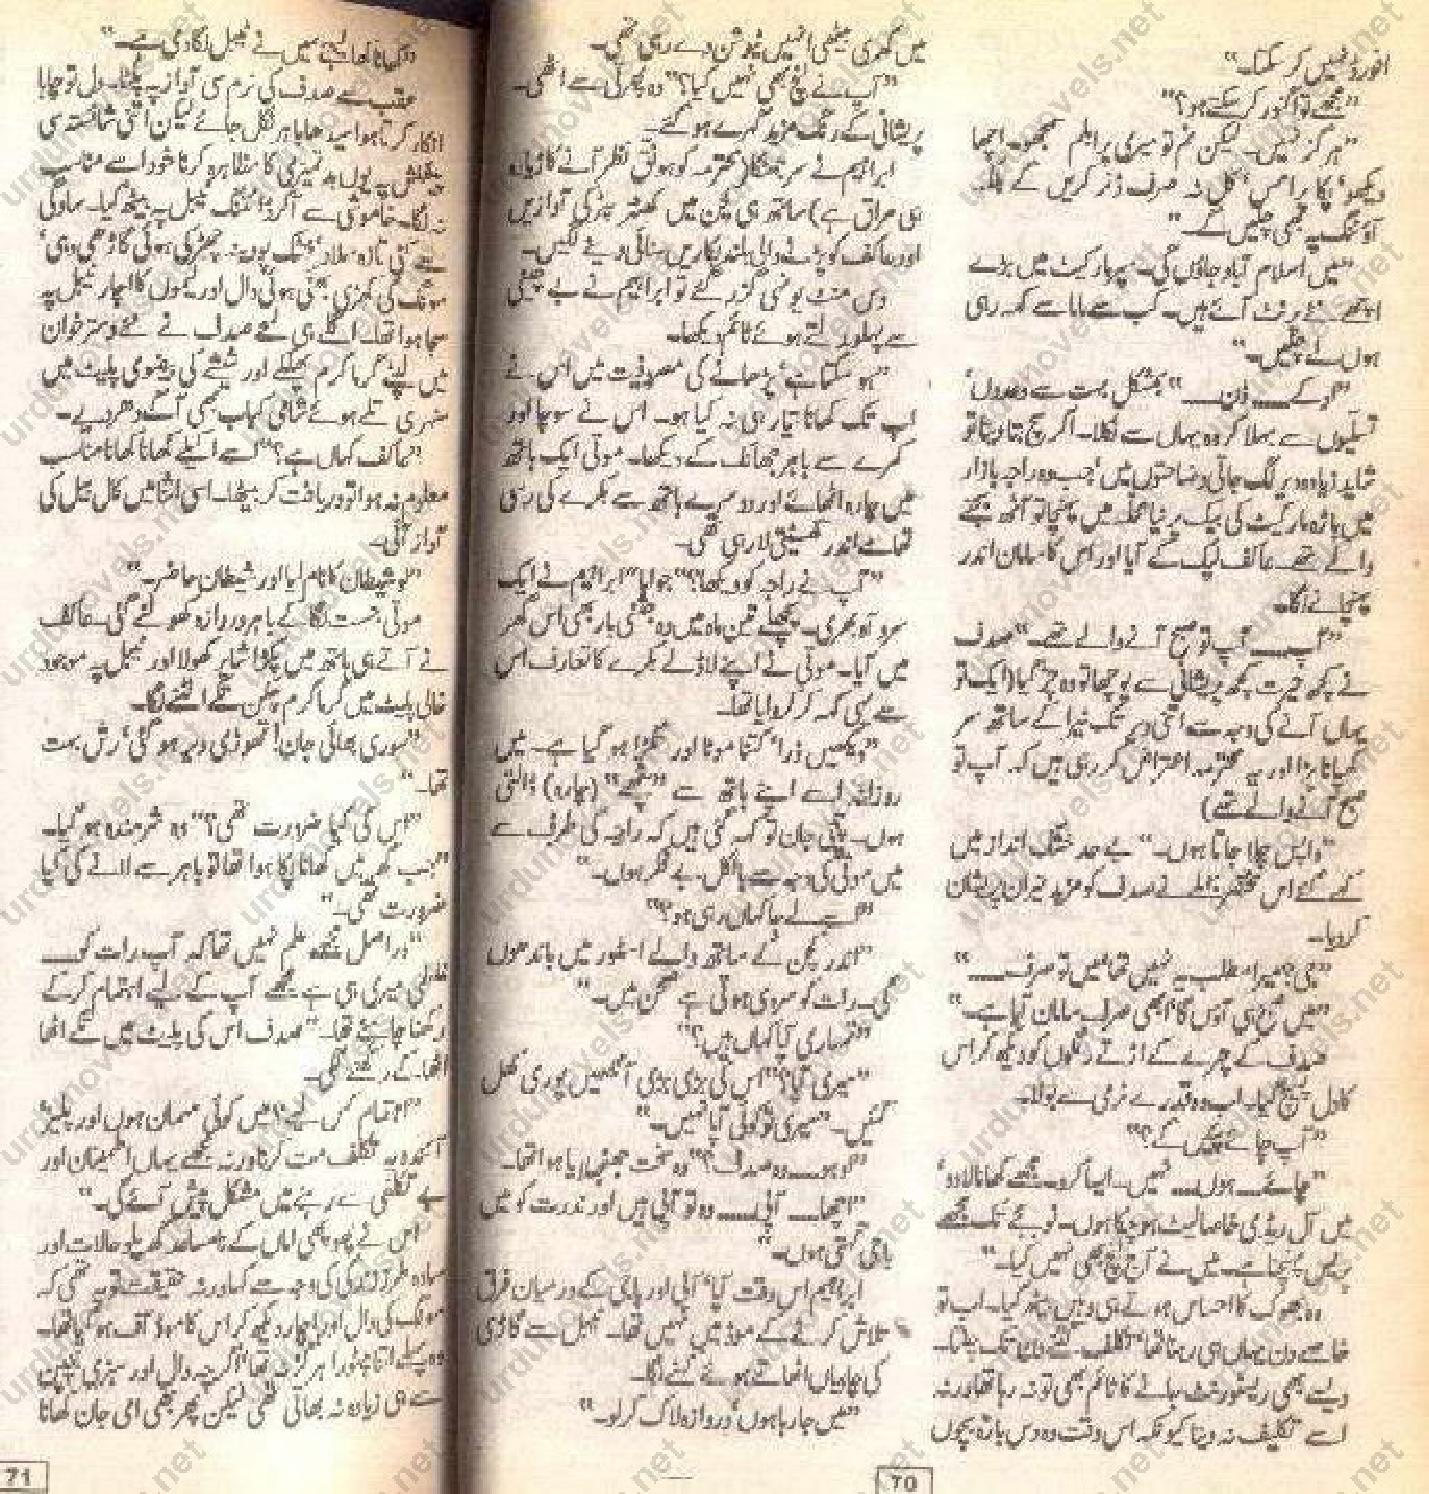 افورڈ نہیں کر سکتا۔"
"مجھے تو اگنور کر سکتے ہو؟"
"ہر گز نہیں۔ لیکن تم تو میری پرابلم سمجھو۔ اچھا
دیکھو' پکا پرامس' کل نہ صرف ڈنر کریں گے بلکہ
آؤٹنگ پہ بھی چلیں گے۔"
"میں اسلام آباد جاؤں گی۔ سپر مارکیٹ میں بڑے
اچھے نئے پرنٹ آئے ہیں۔ کب سے ماما سے کہہ رہی
ہوں لے چلیں۔"
"اوکے ڈن" بمشکل بہت سے وعدوں'
تسلیوں سے بہلا کر وہ یہاں سے نکلا۔ اگر سچ بتا دیتا تو
شاید زیادہ دیر لگ جاتی وضاحتوں میں' جب وہ راجہ بازار
میں باڑہ مارکیٹ کی بیک پر نیا محلہ میں پہنچا تو آٹھ بجنے
والے تھے۔ عاکف لپک کے آیا اور اس کا سامان اندر
پہنچانے لگا۔
"آپ آپ تو صبح آنے والے تھے۔" صدف
نے کچھ حیرت کچھ پریشانی سے پوچھا تو وہ چڑ گیا (ایک تو
یہاں آنے کی وجہ سے اتنی دیر تک نیرا کے ساتھ سر
کھپانا پڑا اور یہ محترمہ اعتراض کر رہی ہیں کہ آپ تو
صبح آنے والے تھے)
"واپس چلا جاتا ہوں۔" بے حد خشک انداز میں
کہے گئے اس مختصر جملے نے صدف کو مزید حیران پریشان
کر دیا۔
"جی؟ میرا مطلب یہ نہیں تھا میں تو صرف"
"میں صبح ہی آؤں گا ابھی صرف سامان آیا ہے۔"
صدف کے چہرے کے اڑتے رنگوں کو دیکھ کر اس
کا دل پسیج گیا۔ اب وہ قدرے نرمی سے بولا۔
"آپ چائے پئیں گے؟"
"چائے ہوں نہیں۔ ایسا کرو مجھے کھانا لا دو'
میں آل ریڈی خاصا لیٹ ہو چکا ہوں۔ نو بجے تک مجھے
پریس پہنچنا ہے۔ میں نے آج لنچ بھی نہیں کیا۔"
وہ بھوک کا احساس ہوتے ہی وہیں بیٹھ گیا۔ اب تو
خاصے دن یہاں ہی رہنا تھا' تکلف کتنے دن تک چلتا۔
ویسے بھی ریسٹورنٹ جانے کا ٹائم بھی تو نہ رہا تھا ورنہ
اسے تکلیف نہ دیتا کیونکہ اس وقت وہ دس بارہ بچوں
میں گھری بیٹھی انہیں ٹیوشن دے رہی تھی۔
"آپ نے لنچ بھی نہیں کیا؟" وہ پھرتی سے اٹھی۔
پریشانی کے رنگ مزید گہرے ہو گئے۔
ابراہیم نے سر جھٹکا (محترمہ کو ہونق نظر آنے کا زیادہ
ہی مراق ہے) ساتھ ہی کچن میں کھٹر پٹر کی آوازیں
اور عاکف کو پڑنے والی بلند پکاریں سنائی دینے لگیں۔
دس منٹ یونہی گزر گئے تو ابراہیم نے بے چینی
سے پہلو بدلتے ہوئے ٹائم دیکھا۔
"ہو سکتا ہے' پڑھانے کی مصروفیت میں اس نے
اب تک کھانا تیار ہی نہ کیا ہو۔ اس نے سوچا اور
کمرے سے باہر جھانک کے دیکھا۔ موتی ایک ہاتھ
میں چارہ اٹھائے اور دوسرے ہاتھ سے بکرے کی رسی
تھامے اندر گھسیٹتی لا رہی تھی۔
"آپ نے راجہ کو دیکھا؟" جواباً" ابراہیم نے ایک
سرد آہ بھری۔ پچھلے تین ماہ میں وہ جتنی بار بھی اس گھر
میں آیا۔ موتی نے اپنے لاڈلے بکرے کا تعارف اس
سے یہی کہہ کر کروایا تھا۔
"دیکھیں ذرا' کتنا موٹا اور تگڑا ہو گیا ہے۔ میں
روزانہ اسے اپنے ہاتھ سے "پٹھے" (چارہ) ڈالتی
ہوں۔ جان تو کہہ گئی ہیں کہ راجہ کی طرف سے
میں موتی کی وجہ سے بالکل بے فکر ہوں۔"
"اسے لے جا کہاں رہی ہو؟"
"اندر کچن کے ساتھ والے اسٹور میں باندھوں
گی۔ رات کو سردی ہوتی ہے صحن میں۔"
"تمہاری آپا کہاں ہیں؟"
"میری آپا؟" اس کی بڑی بڑی آنکھیں پوری کھل
گئیں۔ "میری تو کوئی آپا نہیں۔"
"اوہو وہ صدف؟" وہ سخت جھنجلایا ہوا تھا۔
"اچھا آپی وہ تو آپی ہیں اور ندرت کو میں
باجی کہتی ہوں۔"
ابراہیم اس وقت آپا' آپی اور باجی کے درمیان فرق
تلاش کرنے کے موڈ میں نہیں تھا۔ ٹیبل سے گاڑی
کی چابیاں اٹھاتے ہوئے کہنے لگا۔
"میں جا رہا ہوں' دروازہ لاک کر لو۔"
70
"کھانا کھا لیجیے میں نے ٹیبل لگا دی ہے۔"
عقب سے صدف کی نرم سی آواز پہ پلٹا۔ دل تو چاہا
انکار کرتا ہوا سیدھا باہر نکل جائے لیکن اتنی شائستہ سی
پیشکش پہ یوں بد تمیزی کا مظاہرہ کرنا خود اسے مناسب
نہ لگا۔ خاموشی سے آکر ڈائننگ ٹیبل پہ بیٹھ گیا۔ سادگی
سے کٹی تازہ سلاد' خشک پودینہ چھڑکی ہوئی گاڑھی دہی'
مونگ کی کھڑی بھنی ہوئی دال اور لیموں کا اچار ٹیبل پہ
سجا ہوا تھا۔ اگلے ہی لمحے صدف نے نئے دسترخوان
میں لپٹے گرما گرم پھلکے اور شیشے کی بیضوی پلیٹ میں
سنہری تلے ہوئے شامی کباب بھی آگے دھر دیے۔
"عاکف کہاں ہے؟" اسے اکیلے کھانا کھانا مناسب
معلوم نہ ہوا تو دریافت کر بیٹھا۔ اسی اثنا میں کال بیل کی
آواز آئی۔
"لو شیطان کا نام لیا اور شیطان حاضر۔"
موتی جست لگا کے باہر دروازہ کھولنے گئی۔ عاکف
نے آتے ہی ہاتھ میں پکڑا شاپر کھولا اور ٹیبل پہ موجود
خالی پلیٹ میں گرما گرم چکن تکے الٹنے لگا۔
"سوری بھائی جان! تھوڑی دیر ہو گئی' رش بہت
تھا۔"
"اس کی کیا ضرورت تھی؟" وہ شرمندہ ہو گیا۔
"جب گھر میں کھانا پکا ہوا تھا تو باہر سے لانے کی کیا
ضرورت تھی۔"
"دراصل مجھے علم نہیں تھا کہ آپ رات کو
غلطی میری ہی ہے مجھے آپ کے لیے اہتمام کر کے
رکھنا چاہیے تھا۔" صدف اس کی پلیٹ میں تکے اٹھا
اٹھا کے رکھنے لگی۔
"اہتمام کس لیے؟ میں کوئی مہمان ہوں اور پلیز
آئندہ یہ تکلف مت کرنا ورنہ مجھے یہاں اطمینان اور
بے تکلفی سے رہنے میں مشکل پیش آئے گی۔"
اس نے پھوپھی اماں کے نامساعد گھریلو حالات اور
سادہ طرز زندگی کی وجہ سے کہا ورنہ حقیقت تو یہ تھی کہ
مونگ کی دال اور اچار دیکھ کر اس کا موڈ آف ہو گیا تھا۔
وہ پہلے اتنا چٹورا ہر گز نہ تھا' اگرچہ دال اور سبزی بچپن
سے ہی زیادہ نہ بھاتی تھی لیکن پھر بھی امی جان کھانا
71
urdunovels.net